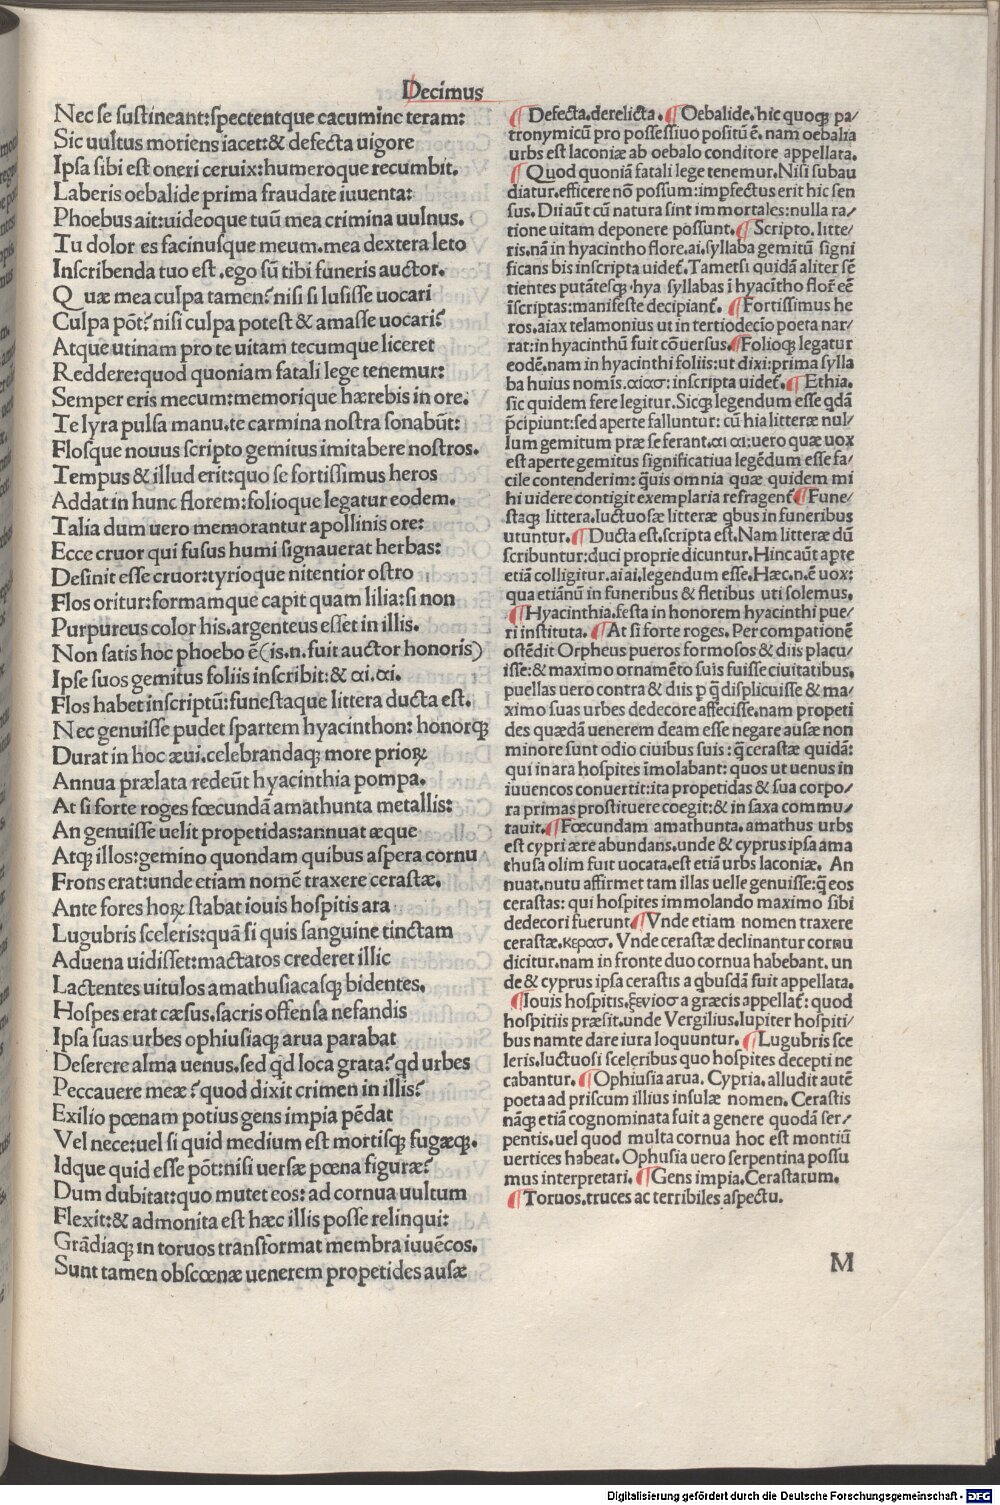 Decimus
Nec se sustineant:spectentque cacumine teram:
Sic uultus moriens iacet:& defecta uigore
Ipsa sibi est oneri ceruix:humeroque recumbit.
Laberis oebalide prima fraudate iuuenta:
Phoebus ait:uideoque tuũ mea crimina uulnus.
Tu dolor es facinusque meum.mea dextera leto
Inscribenda tuo est .ego sũ tibi funeris auctor.
Quæ mea culpa tamen? nisi si lusisse uocari
Culpa põt? nisi culpa potest & amasse uocari?
Atque utinam pro te uitam tecumque liceret
Reddere:quod quoniam fatali lege tenemur:
Semper eris mecum:memorique hærebis in ore.
Te lyra pulsa manu.te carmina nostra sonabũt:
Flosque nouus scripto gemitus imitabere nostros.
Tempus & illud erit:quo se fortissimus heros
Addat in hunc florem:folioque legatur eodem.
Talia dum uero memorantur apollinis ore:
Ecce cruor qui fusus humi signauerat herbas:
Desinit esse cruor:tyrioque nitentior ostro
Flos oritur:formamque capit quam lilia:si non
Purpureus color his.argenteus esset in illis.
Non satis hoc phoebo ẽ(is.n.fuit auctor honoris)
Ipse suos gemitus foliis inscribit:& αι.αι.
Flos habet inscriptũ:funestaque littera ducta est.
Nec genuisse pudet spartem hyacinthon: honorꝗ
Durat in hoc æui.celebrandaꝗ more prioꝝ
Annua prælata redeũt hyacinthia pompa.
At si forte roges fœcundã amathunta metallis:
An genuisse uelit propetidas:annuat æque
Atꝗ illos:gemino quondam quibus aspera cornu
Frons erat:unde etiam nomẽ traxere cerastæ.
Ante fores hoꝝ stabat iouis hospitis ara
Lugubris sceleris:quã si quis sanguine tinctam
Aduena uidisset:mactatos crederet illic
Lactentes uitulos amathusiacasꝗ bidentes.
Hospes erat cæsus.sacris offensa nefandis
Ipsa suas urbes ophiusiaꝗ arua parabat
Deserere alma uenus.sed ꝗd loca grata? ꝗd urbes
Peccauere meæ? quod dixit crimen in illis?
Exilio pœnam potius gens impia pẽdat
Vel nece:uel si quid medium est mortisꝗ fugæꝗ.
Idque quid esse põt:nisi uersæ pœna figuræ?
Dum dubitat:quo mutet eos: ad cornua uultum
Flexit:& admonita est hæc illis posse relinqui:
Grãdiaꝗ in toruos transformat membra iuuẽcos.
Sunt tamen obscœnæ uenerem propetides ausæ
¶ Defecta.derelicta. ¶ Oebalide.hic quoꝗ pa/
tronymicũ pro possessiuo positũ ẽ.nam oebalia
urbs est laconiæ ab oebalo conditore appellata.
¶ Quod quoniã fatali lege tenemur.Nisi subau
diatur.efficere nõ possum:impfectus erit hic sen
sus.Dii aũt cũ natura sint immortales:nulla ra/
tione uitam deponere possunt.¶ Scripto.litte/
ris.nã in hyacintho flore.ai.syllaba gemitũ signi
ficans bis inscripta uidet̃.Tametsi quidã aliter sẽ
tientes putãtesꝗ.hya syllabas ĩ hyacĩtho flor̃ eẽ
ĩscriptas:manifeste decipiant̃. ¶ Fortissimus he
ros.aiax telamonius ut in tertiodecĩo poeta nar/
rat:in hyacinthũ fuit cõuersus.¶ Folioꝗ legatur
eodẽ.nam in hyacinthi foliis:ut dixi:prima sylla
ba huius nomĩs.αιασ:inscripta uidet̃.¶ Ethia.
sic quidem fere legitur.Sicꝗ legendum esse ꝗdã
p̃cipiunt:sed aperte falluntur: cũ hia litteræ nul/
lum gemitum præ se ferant.αι αι:uero quæ uox
est aperte gemitus significatiua legẽdum esse fa/
cile contenderim: q̃uis omnia quæ quidem mi
hi uidere contigit exemplaria refragent̃¶ Fune/
staꝗ littera.luctuosæ litteræ ꝗbus in funeribus
utuntur.¶ Ducta est.scripta est.Nam litteræ dũ
scribuntur:duci proprie dicuntur.Hinc aũt apte
etiã colligitur.ai ai.legendum esse.Hæc.n.ẽ uox:
qua etiãnũ in funeribus & fletibus uti solemus.
¶ Hyacinthia.festa in honorem hyacinthi pue/
ri instituta. ¶ At si forte roges. Per compationẽ
ostẽdit Orpheus pueros formosos & diis placu/
isse:& maximo ornamẽto suis fuisse ciuitatibus.
puellas uero contra & diis p q̃ displicuisse & ma/
ximo suas urbes dedecore affecisse.nam propeti
des quædã uenerem deam esse negare ausæ non
minore sunt odio ciuibus suis : q̃ cerastæ quidã:
qui in ara hospites ĩmolabant: quos ut uenus in
iuuencos conuertit:ita propetidas & sua corpo/
ra primas prostituere coegit:& in saxa commu/
tauit.¶ Fœcundam amathunta. amathus urbs
est cypri ære abundans.unde & cyprus ipsa ama
thusa olim fuit uocata.est etiã urbs laconiæ. An
nuat.nutu affirmet tam illas uelle genuisse:q̃ eos
cerastas: qui hospites immolando maximo sibi
dedecori fuerunt¶ Vnde etiam nomen traxere
cerastæ.κερασ. Vnde cerastæ declinantur cornu
dicitur.nam in fronte duo cornua habebant. un
de & cyprus ipsa cerastis a ꝗbusdã fuit appellata.
¶ Iouis hospitis.ξενιοσ a græcis appellat̃: quod
hospitiis præsit.unde Vergilius.Iupiter hospiti/
bus nam te dare iura loquuntur. ¶ Lugubris sce
leris.luctuosi sceleribus quo hospites decepti ne
cabantur. ¶ Ophiusia arua. Cypria.alludit autẽ
poeta ad priscum illius insulæ nomen. Cerastis
nãꝗ etiã cognominata fuit a genere quodã ser/
pentis.uel quod multa cornua hoc est montiũ
uertices habeat. Ophusia uero serpentina possu
mus interpretari. ¶ Gens impia.Cerastarum.
¶ Toruos.truces ac terribiles aspectu.
M
Digitalisierung gefördert durch die Deutsche Forschungsgemeinschaft - DFG